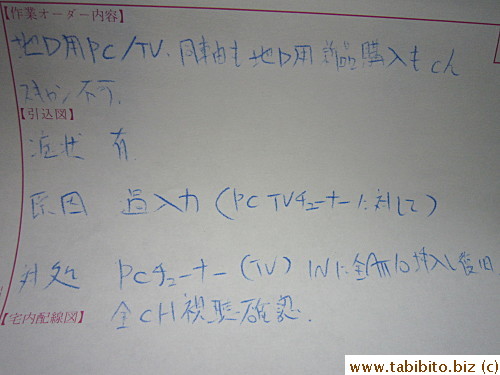 【作業オーダー内容】
地D用PC/TV、同軸も地D用新品購入もch
スキャン不可.
【引込図】
症状 有
原因 過入力(PC TVチューナーに対して)
対処 PCチューナー(TV)INに全ATT10挿入し復旧
【宅内配線図】
全CH視聴確認.
www.tabibito.biz (c)